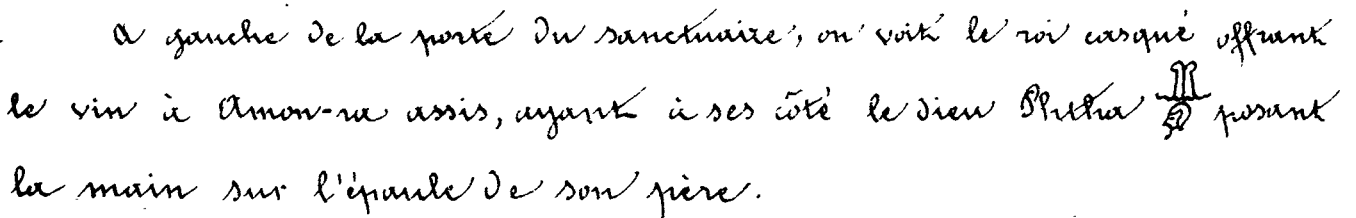 A gauche de la porte du sanctuaire, on voit le roi casqué offrant
le vin à Amon-ra assis, ayant à ses côté le dieu Phtha posant
la main sur l'épaule de son père.